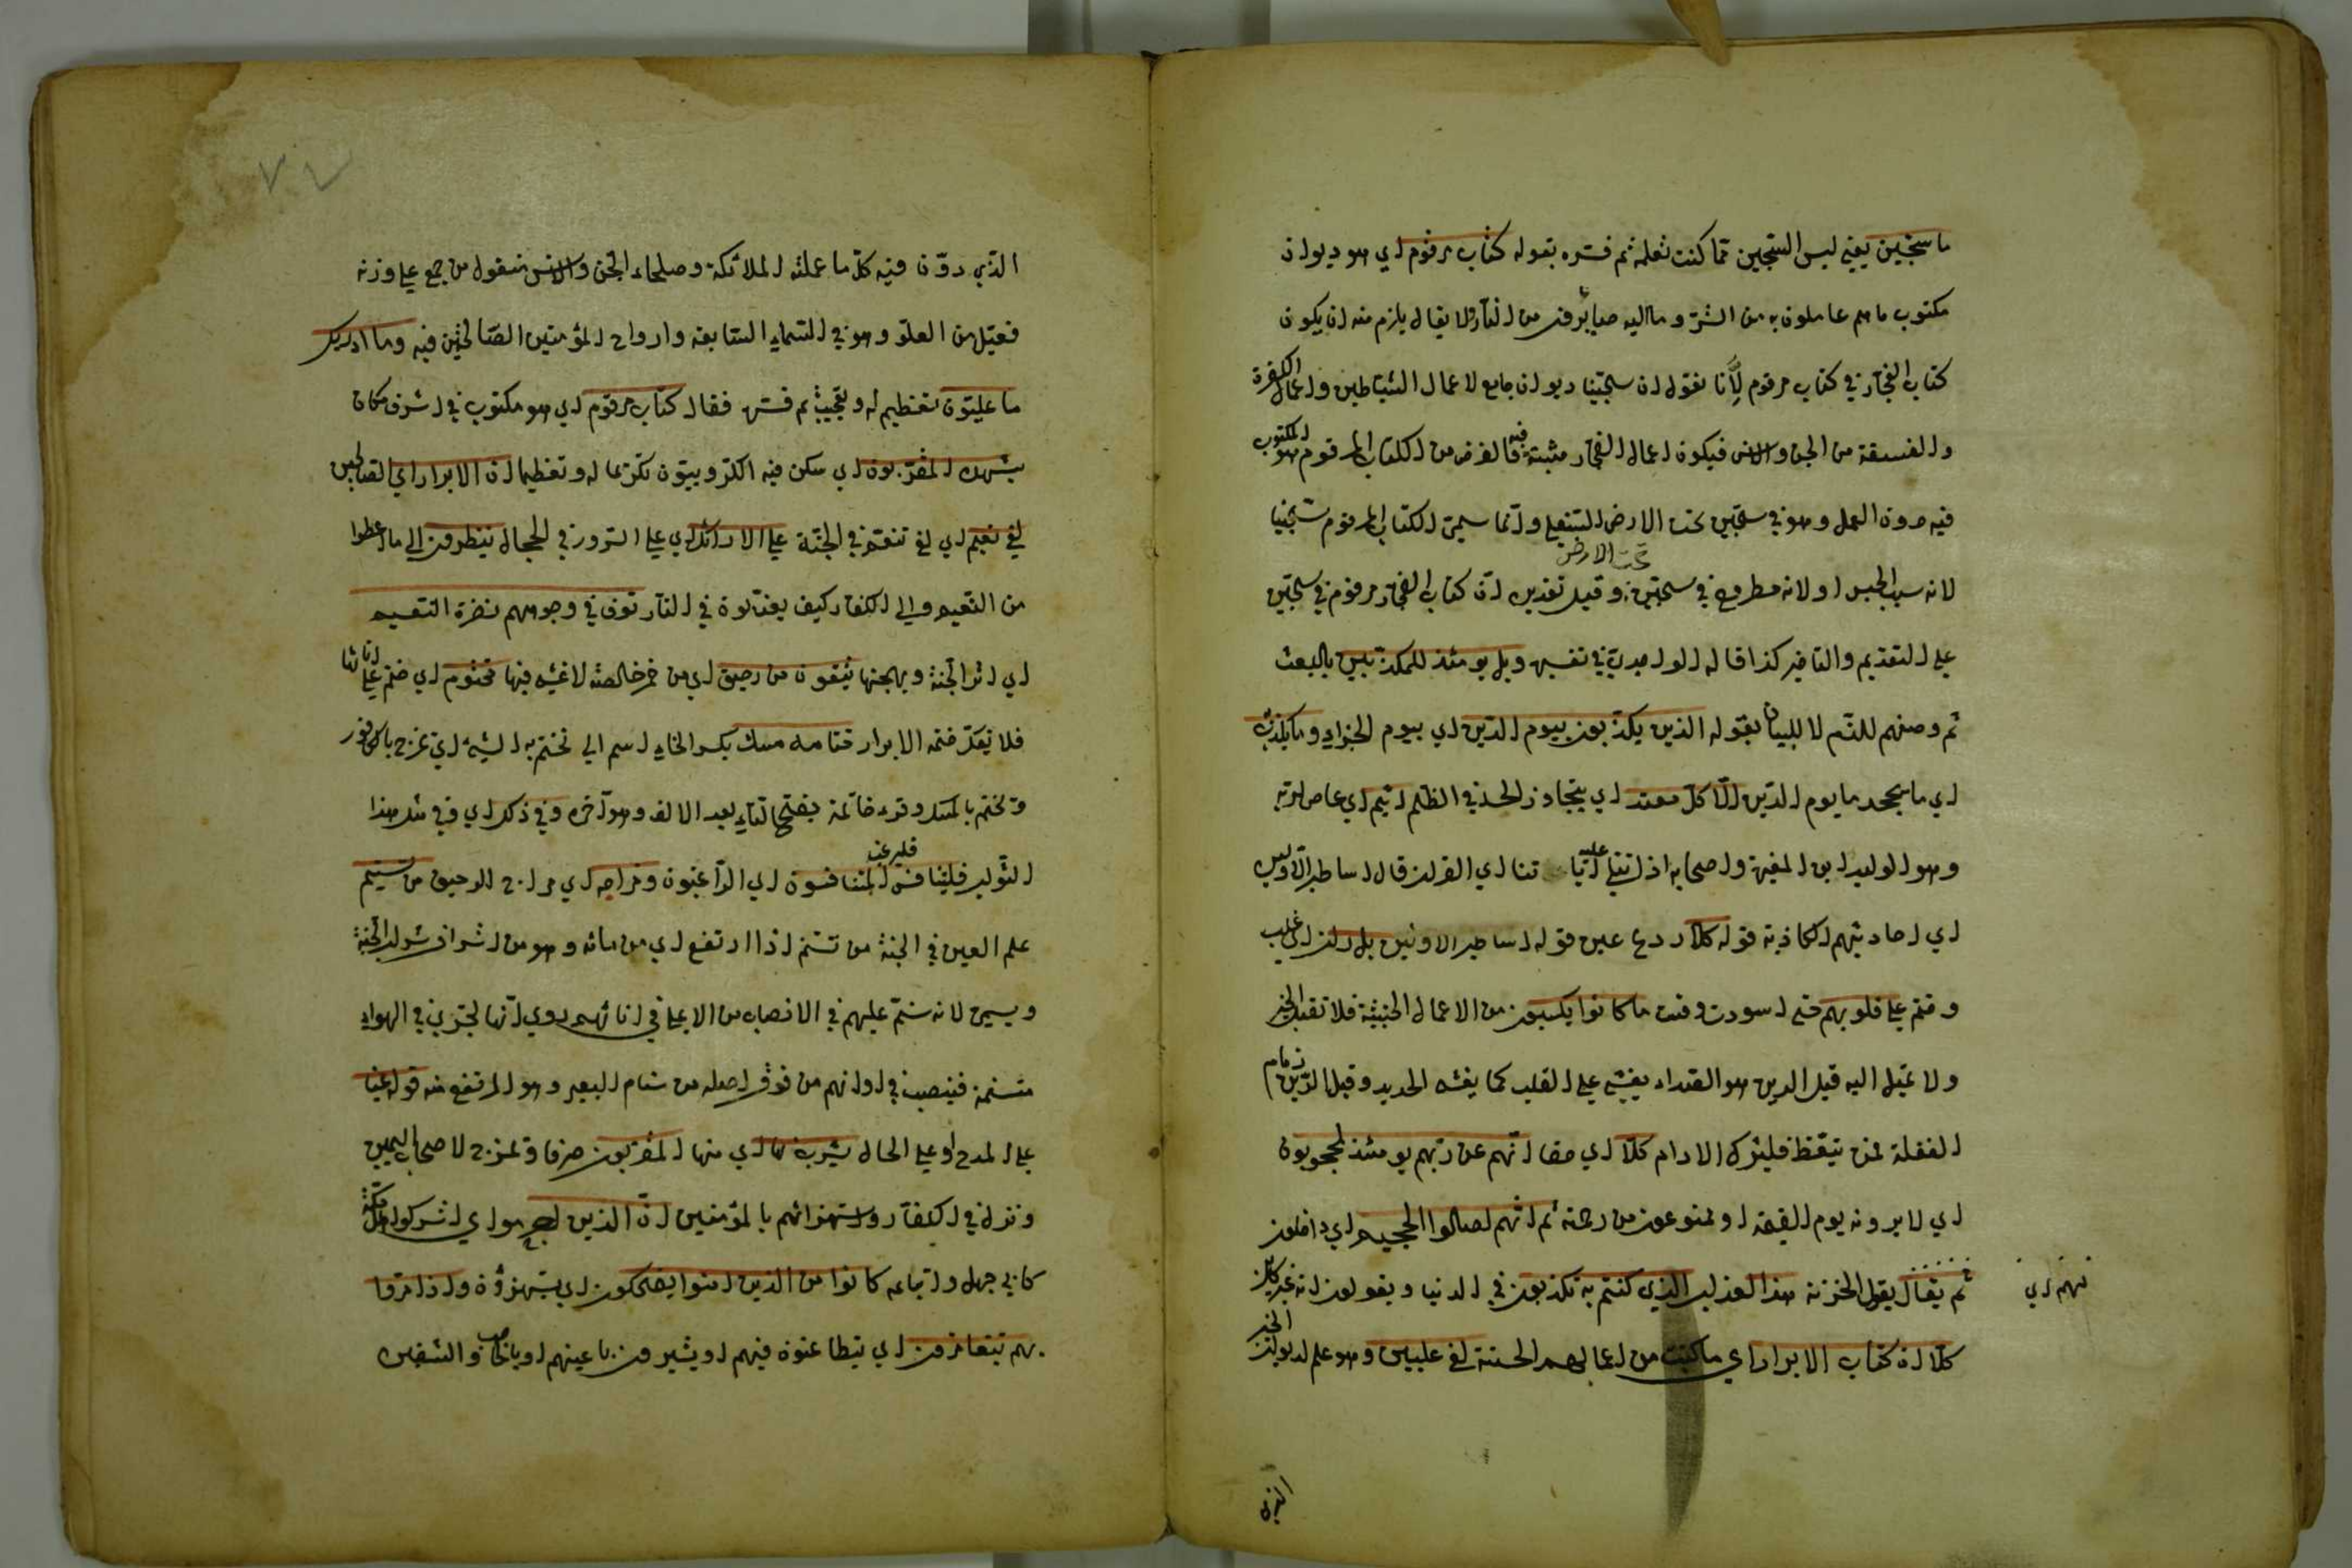 ما سجين يعني ليس السجين مما كنت تعلمه ثم فسره بقوله كتاب مرقوم اي هو ديوان
مكتوب ما هم عاملون به من الشر وما اليه صايرون من النار ولا يقال يلزم منه ان يكون
كتاب الفجار في كتاب مرقوم لانا نقول ان سجينا ديوان جامع لاعمال الشياطين واعمال الكفرة
والفسقة من الجن والانس فيكون اعمال الفجار مثبتة فيه فالغرض من الكتاب المرقوم هو المكتوب
فيه دون العمل وهو في سجين تحت الارض السفلى وانما سمى الكتاب المرقوم سجينا
تحت الارض
لانه سبب الحبس او لانه مطروح في سجين وقيل تقديره ان كتاب الفجار مرقوم في سجين
على التقديم والتاخير كذا قاله الواحدي في تفسيره ويل يومئذ للمكذبين بالبعث
ثم وصفهم للذم لا للبيان بقوله الذين يكذبون بيوم الدين اي بيوم الجزاء وما يكذب
اي ما يجحد ما يوم الدين الا كل معتد اي يتجاوز الحد في الظلم اثيم اي عاص لربه
وهو الوليد ابن المغيرة واصحابه اذا تتلى عليه آياتنا اي القران قال اساطير الاولين
اي احاديثهم الكاذبة قوله كلا ردع عن قوله اساطير الاولين بل ران اي غلب
وختم على قلوبهم حتى اسودت وقست ما كانوا يكسبون من الاعمال الخبيثة فلا تقبل الخير
ولا تميل اليه قيل الرين هو الصداء يغشى على القلب كما يغشى الحديد وقيل الرين
الغفلة فمن تيقظ فليترك الادام كلا اي حقا انهم عن ربهم يومئذ لمحجوبون
اي لا يرونه يوم القيمة او ممنوعون من رحمته ثم انهم لصالوا الجحيم اي داخلون
ثم يقال يقول الخزنة هذا العذاب الذي كنتم به تكذبون في الدنيا ويقولون انه غير كائن
لهم اي
كلا ان كتاب الابرار اي ما كتبت من اعمالهم الحسنة لفي عليين وهو علم لديوان الخير
الذي
الذي دوّن فيه كل ما عملته الملائكة وصلحاء الجن والانس منقول من جمع على وزنه
فعيل من العلو وهو في السماء السابعة وارواح المؤمنين الصالحين فيه وما ادريك
ما عليون تعظيم له وتعجيب ثم فسره فقال كتاب مرقوم اي هو مكتوب في اشرف مكان
يشهده المقربون اي سكن فيه الكروبيون تكرما له وتعظيما ان الابرار اي الصالحين
لفي نعيم اي لفي تنعم في الجنة على الارائك اي على السرور في الحجال ينظرون الى ما اعطوا
من النعيم والى الكفار كيف يعذبون في النار تعرف في وجوههم نضرة النعيم
اي اثر الجنة وبهجتها يسقون من رحيق اي من خمر خالصة لا غش فيها مختوم اي ختم على انائها
فلا يفك ختمه الابرار ختامه مسك بكسر الخاء اسم الى تختم به الشيء اي تمزج بالكافور
وتختم بالمسك وقرء خاتمه بفتح التاء بعد الالف وهو آخره وفي ذلك اي وفي مثل هذا
الثواب فليتنافس المتنافسون اي الراغبون ومزاجه اي مزاج الرحيق من تسنيم
فليرغب
علم العين في الجنة من تسنم اذا ارتفع اي من مائه وهو من اشرف شراب الجنة
ويسمى لانه تسنم عليهم في الانصباب من الاعلى في انائهم روي انها تجري في الهواء
متسنمة فينصب في اوانهم من فوق اصله من سنام البعير وهو المرتفع منه قوله عينا
على المدح او على الحال يشرب بها اي منها المقربون صرفا وتمزج لاصحاب اليمين
ونزل في الكفار واستهزائهم بالمؤمنين ان الذين اجرموا اي اشركوا اهل مكة
كابي جهل واتباعه كانوا من الذين امنوا يضحكون اي يستهزؤن واذا مروا
بهم يتغامزون اي يتطاعنون فيهم او يشيرون باعينهم او بالحاجب والشفين